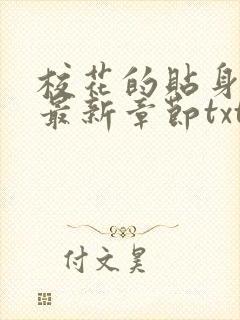 校花的贴身
最新章节txt
付文昊